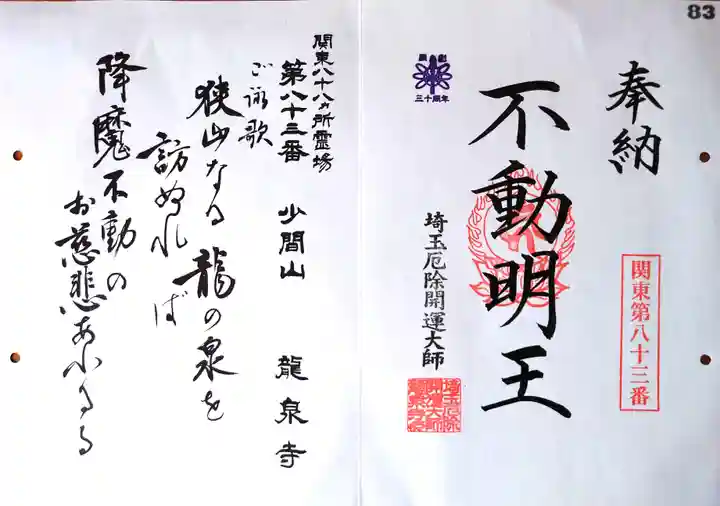 83
奉納
関東第八十三番
不動明王
三十周年
埼玉厄除開運大師
埼玉厄除
開運大師
関東八十八ヵ所霊場
第八十三番 少間山 龍泉寺
ご詠歌
狭山なる龍の泉を
訪ぬれば
降魔不動の
お慈悲あふるる